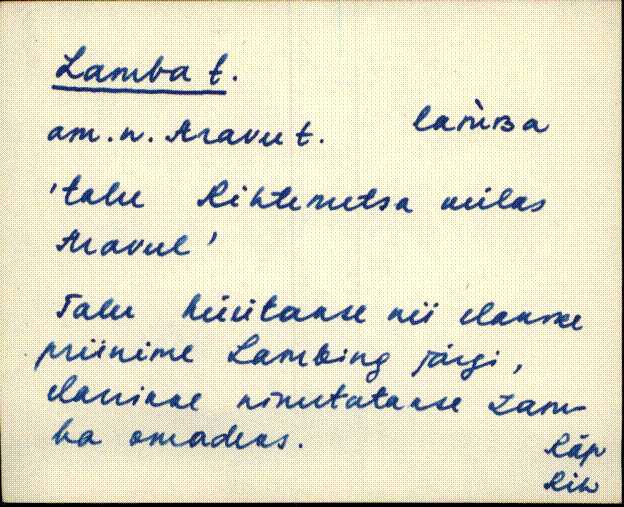 Lamba t.
am. n. Aravu t. lam̀ʙa
'talu Rihtemetsa külas
Aravul'
Talu hüütakse nii elanike
priinime Lambing järgi,
elanikke nimetatakse Lam-
ba omadeks.
Räp
Rih